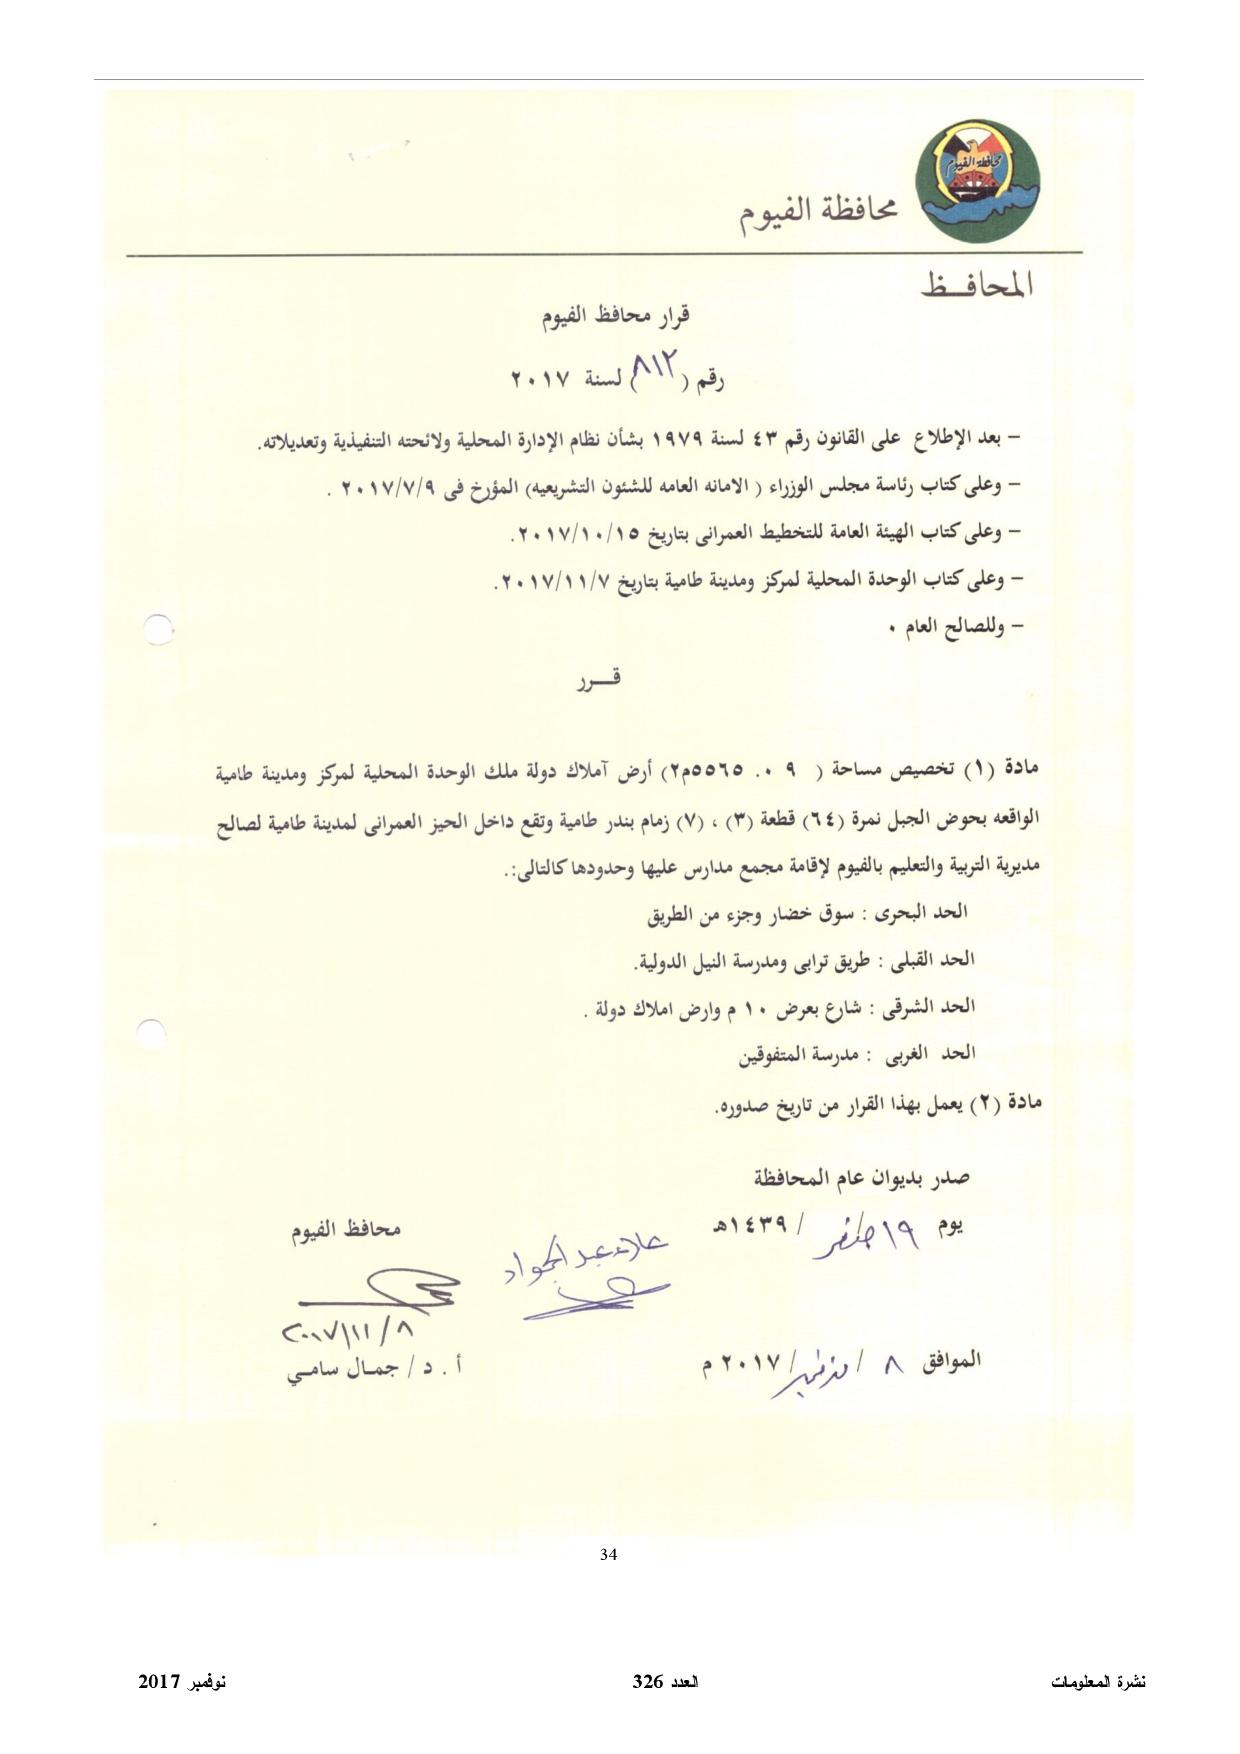 محافظة الفيوم
محافظة الفيوم
المحافـــظ
قرار محافظ الفيوم
رقم (٨١٢) لسنة ٢٠١٧
– بعد الإطلاع على القانون رقم ٤٣ لسنة ١٩٧٩ بشأن نظام الإدارة المحلية ولائحته التنفيذية وتعديلاته.
– وعلى كتاب رئاسة مجلس الوزراء ( الامانه العامه للشئون التشريعيه) المؤرخ فى ٢٠١٧/٧/٩ .
– وعلى كتاب الهيئة العامة للتخطيط العمرانى بتاريخ ٢٠١٧/١٠/١٥.
– وعلى كتاب الوحدة المحلية لمركز ومدينة طامية بتاريخ ٢٠١٧/١١/٧.
– وللصالح العام ٠
قـــرر
مادة (١) تخصيص مساحة ( ٠٩ .٥٥٦٥م٢) أرض آملاك دولة ملك الوحدة المحلية لمركز ومدينة طامية
الواقعه بحوض الجبل نمرة (٦٤) قطعة (٣) ، (٧) زمام بندر طامية وتقع داخل الحيز العمرانى لمدينة طامية لصالح
مديرية التربية والتعليم بالفيوم لإقامة مجمع مدارس عليها وحدودها كالتالى:.
الحد البحرى : سوق خضار وجزء من الطريق
الحد القبلى : طريق ترابى ومدرسة النيل الدولية.
الحد الشرقى : شارع بعرض ١٠ م وارض املاك دولة .
الحد الغربى : مدرسة المتفوقين
مادة (٢) يعمل بهذا القرار من تاريخ صدوره.
صدر بديوان عام المحافظة
يوم ١٩ صفر / ١٤٣٩هـ
علاء عبد الجواد
محافظ الفيوم
٢٠١٧/١١/٨
أ . د / جمـال سامـي
الموافق ٨ / نوفمبر / ٢٠١٧ م
34
نشرة المعلومات العدد 326 نوفمبر 2017